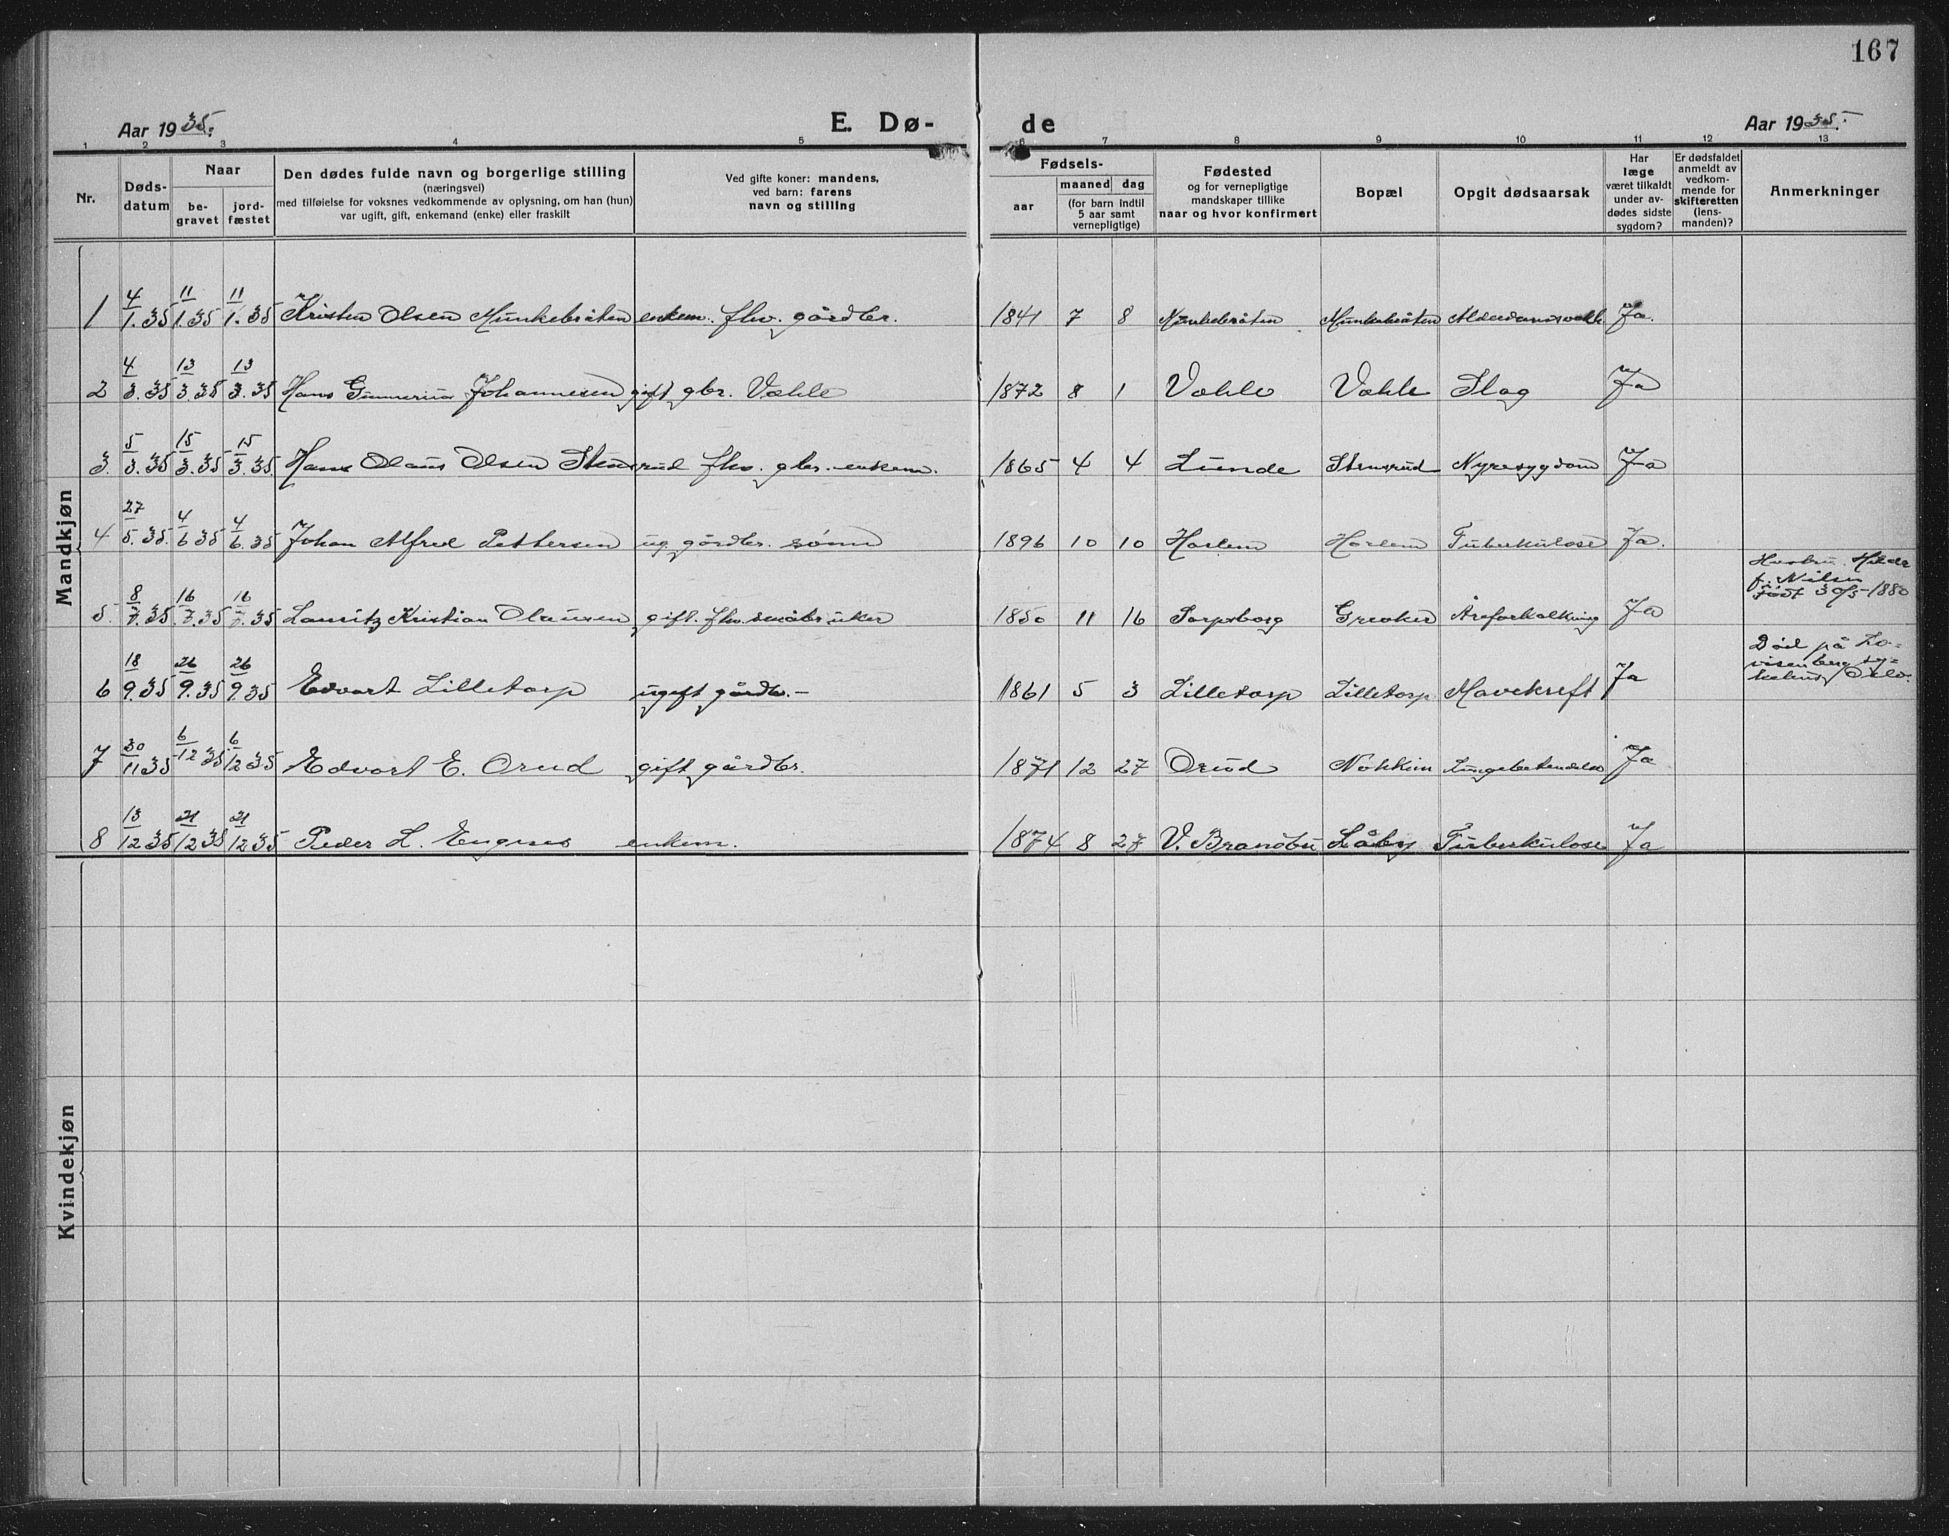 167
Aar 1935. E. Dø- de Aar 1935.
1 2 3 4 5 6 7 8 9 10 11 12 13
Nr. Døds-datum Naar be-gravet jord-fæstet Den dødes fulde navn og borgerlige stilling (næringsvei) med tilføielse for voksnes vedkommende av oplysning, om han (hun) var ugift, gift, enkemand (enke) eller fraskilt Ved gifte koner: mandens, ved barn: farens navn og stilling Fødsels- aar maaned dag (for barn indtil 5 aar samt vernepligtige) Fødested og for vernepligtige mandskaper tillike naar og hvor konfirmert Bopæl Opgit dødsaarsak Har læge været tilkaldt under av-dødes sidste sygdom? Er dødsfaldet anmeldt av vedkom-mende for skifteretten (lens-manden)? Anmerkninger
Mandkjøn
1 4/1.35 11/1.35 11/1.35 Kristen Olsen Munkebråten enkem. fhv. gårdbr. 1841 7 8 Munkebråten Munkebråten Ja.
2 4/3.35 13/3.35 13/3.35 Hans Gunnerius Johannesen gift gbr. Væhle 1872 8 1 Væhle Væhle Slag Ja
3. 5/3.35 15/3.35 15/3.35 Hans Olaus Olsen Stensrud fhv. gbr. enkem. 1865 4 4 Lunde Stensrud Nyresygdom Ja
4 27/5.35. 4/6 35 4/6.35 Johan Alfred Pettersen ug. gårdbr. sønn 1896 10 10 Haslem Haslem Tuberkulose Ja.
5 8/7.35 16/7.35 16/7.35 Lauritz Kristian Olausen gift. fhv. småbruker 1850 11 16 Sarpsborg Greåker Åreforkalkning Ja Hustru. Hilda f. Nilsen født 30/5-1880
6 18/9.35 26/9.35 26/9.35 Edvart Lilletorp ugift gårdbr.- 1861 5 3 Lilletorp Lilletorp Mavekreft Ja Død på Lo-visenberg sy-kehus, Oslo.
7 30/11 35 6/12 35 6/12 35 Edvart E. Orud gift gårdbr. 1871 12 27 Orud Nokkim Lungebetendelse Ja
8 13/12 35 21/12 35 21/12 35 Peder L. Engnes enkem. 1874 8 27 V. Brandbu Låby Tuberkulose Ja
Kvindekjøn